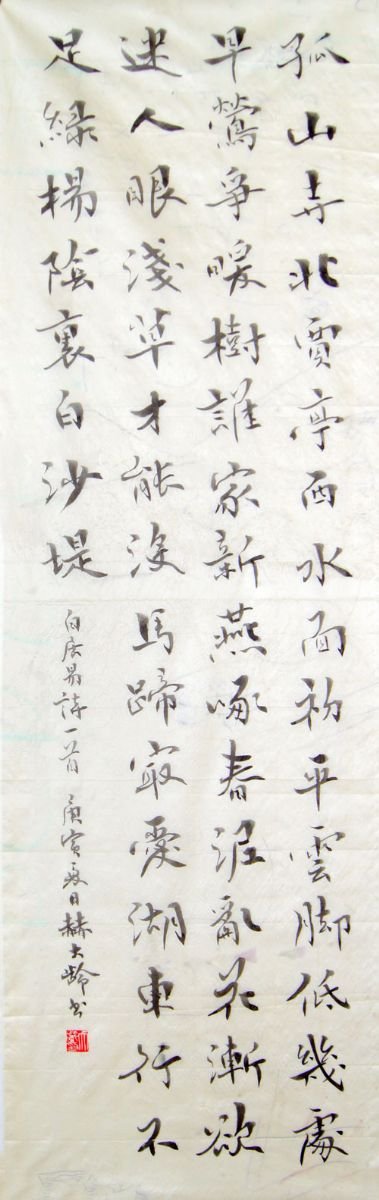 孤山寺北賈亭西水面初平雲脚低幾處
早鶯爭暖樹誰家新燕啄春泥亂花漸欲
迷人眼淺草才能没馬蹄㝡愛湖東行不
足綠楊陰裏白沙堤
白居易詩一首 庚寅夏日赫大齡书